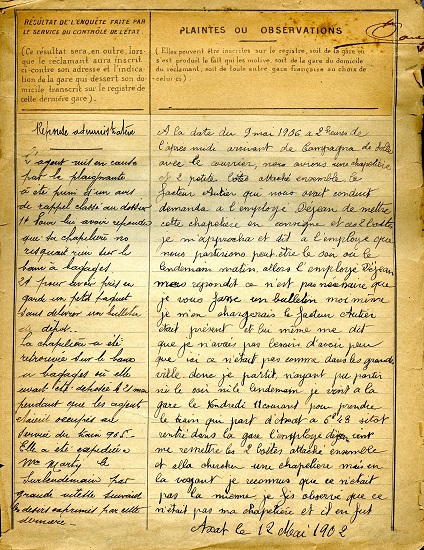 RÉSULTAT DE L'ENQUÊTE FAITE PAR
LE SERVICE DU CONTRÔLE DE L'ÉTAT
(Ce résultat sera, en outre, lors-
que le reclamant aura inscrit
ci-contre son adresse et l'indica-
tion de la gare qui dessert son do-
micile transcrit sur le registre de
cette dernière gare).
Réponse administrative
L'agent mis en cause
par la plaignante
a été puni d'un avis
de rappel classé au dossier
1º Pour lui avoir répondu
que sa chapelière ne
risquait rien sur le
banc à bagages
2º pour avoir pris en
garde un petit paquet
sans délivrer un bulletin
de dépôt.
La chapelière a été
retrouvée sur le banc
à bagages où elle
avait été déposée le 9 mai
pendant que les agents
étaient occupés au
service du train 905.
Elle a été expédiée à
Mme Marty le
surlendemain par
grande vitesse suivant
le désir exprimé par cette
dernière.
PLAINTES OU OBSERVATIONS
(Elles peuvent être inscrites sur le registre, soit de la gare où
s'est produit le fait qui les motive, soit de la gare du domicile
du réclamant, soit de toute autre gare française au choix de
celui-ci)
A la date du 9 mai 1906 a 2 heures de
l'après midi arrivant de Campagna de
avec le courrier, nous avions une chapelière
et 2 petite boites attaché ensemble le
facteur Autier qui nous avait conduit
demanda a l'employé Déjean de mettre
cette chapelière en consigne et ces boites
je m'approcha et dit a l'employé que
nous partirions peut être le soir ou le
lendemain matin. allors l'employé Déjean
nous répondit ce n'est pas nécessaire que
je vous fasse un bulletin moi même
je m'en chargerais le facteur Autier
était présent et lui même me dit
que je n'avais pas besoin d'avoir peur
que ici ce n'était pas comme dans les grande
ville. donc je partit, n'ayant pu partir
ni le soir ni le lendemain je vient a la
gare le Vendredi 11 courant pour prendre
le train qui part d'Axat a 6h 43 sitot
rentré dans la gare l'employé Dejean vient
me remettre les 2 boites attaché ensemble
et alla chercher une chapelière mais en
la voyant je reconnus que ce n'était
pas la mienne je fis observe que ce
n'était pas ma chapelière et il en fut
Axat le 12 Mai 1902